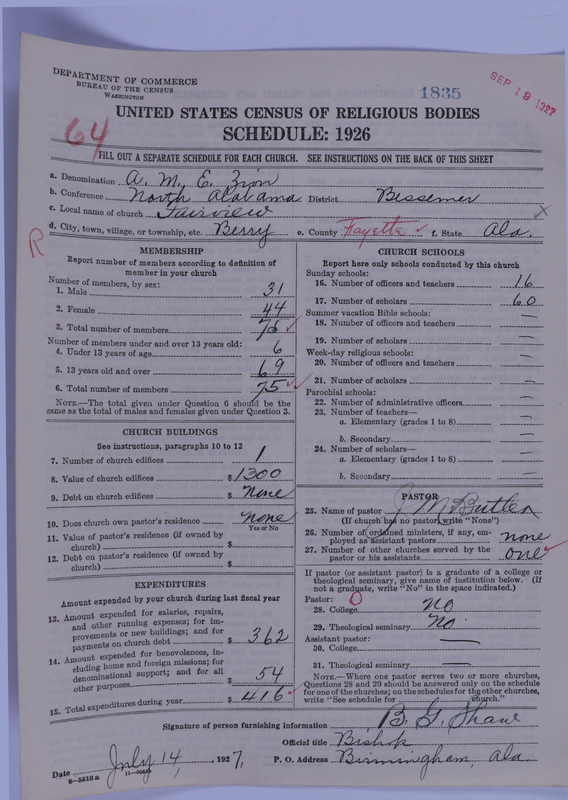 DEPARTMENT OF COMMERCE
BUREAU OF THE CENSUS
WASHINGTON
1835
SEP 19 1927
UNITED STATES CENSUS OF RELIGIOUS BODIES
SCHEDULE: 1926
64
FILL OUT A SEPARATE SCHEDULE FOR EACH CHURCH. SEE INSTRUCTIONS ON THE BACK OF THIS SHEET
a. Denomination A. M. E. Zion
b. Conference North Alabama District Bessemer
c. Local name of church Fairview
d. City, town, village, or township, etc. Berry e. County Fayette f. State Ala.
R
MEMBERSHIP
Report number of members according to definition of
member in your church
Number of members, by sex:
1. Male 31
2. Female 44
3. Total number of members 75
Number of members under and over 13 years old:
4. Under 13 years of age 6
5. 13 years old and over 69
6. Total number of members 75
NOTE.—The total given under Question 6 should be the
same as the total of males and females given under Question 3.
CHURCH BUILDINGS
See instructions, paragraphs 10 to 12
7. Number of church edifices 1
8. Value of church edifices $ 1300
9. Debt on church edifices $ None
10. Does church own pastor's residence none
Yes or No
11. Value of pastor's residence (if owned by
church) $
12. Debt on pastor's residence (if owned by
church) $
EXPENDITURES
Amount expended by your church during last fiscal year
13. Amount expended for salaries, repairs,
and other running expenses; for im-
provements or new buildings; and for
payments on church debt $ 362
14. Amount expended for benevolences, in-
cluding home and foreign missions; for
denominational support; and for all
other purposes $ 54
15. Total expenditures during year $ 416
CHURCH SCHOOLS
Report here only schools conducted by this church
Sunday schools:
16. Number of officers and teachers 16
17. Number of scholars 60
Summer vacation Bible schools:
18. Number of officers and teachers —
19. Number of scholars —
Week-day religious schools:
20. Number of officers and teachers —
21. Number of scholars —
Parochial schools:
22. Number of administrative officers —
23. Number of teachers—
a. Elementary (grades 1 to 8) —
b. Secondary —
24. Number of scholars—
a. Elementary (grades 1 to 8) —
b. Secondary —
PASTOR
25. Name of pastor J. M. Butler
(If church has no pastor, write "None")
26. Number of ordained ministers, if any, em-
ployed as assistant pastors none
27. Number of other churches served by the
pastor or his assistants one
If pastor (or assistant pastor) is a graduate of a college or
theological seminary, give name of institution below. (If
not a graduate, write "No" in the space indicated.)
Pastor: 0
28. College no
29. Theological seminary no.
Assistant pastor:
30. College —
31. Theological seminary —
NOTE.—Where one pastor serves two or more churches,
Questions 28 and 29 should be answered only on the schedule
for one of the churches; on the schedules for the other churches,
write "See schedule for church."
Signature of person furnishing information B. G. Shaw
Official title Bishop
Date July 14, 1927, P. O. Address Birmingham, Ala.